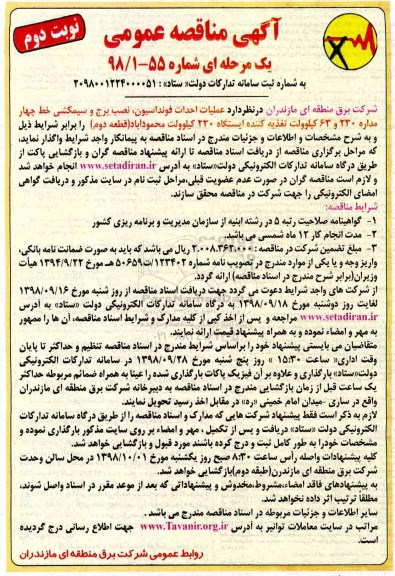 نوبت دوم
آگهی مناقصه عمومی
یک مرحله ای شماره ۵۵-۹۸/۱
به شماره ثبت سامانه تدارکات دولت« ستاد» : ۲۰۹۸۰۰۱۲۲۴۰۰۰۰۵۱
شرکت برق منطقه ای مازندران درنظردارد عملیات احداث فونداسیون، نصب برج و سیمکشی خط چهار
مداره ۲۳۰ و ۶۳ کیلوولت تغذیه کننده ایستگاه ۲۳۰ کیلوولت محمودآباد(قطعه دوم) را برابر شرایط ذیل
و به شرح مشخصات و اطلاعات و جزئیات مندرج در اسناد مناقصه به پیمانکار واجد شرایط واگذار نماید،
که مراحل برگزاری مناقصه از دریافت اسناد مناقصه تا ارائه پیشنهاد مناقصه گران و بازگشایی پاکت از
طریق درگاه سامانه تدارکات الکترونیکی دولت«ستاد» به آدرس www.setadiran.ir انجام خواهد شد
و لازم است مناقصه گران در صورت عدم عضویت قبلی،مراحل ثبت نام در سایت مذکور و دریافت گواهی
امضای الکترونیکی را جهت شرکت در مناقصه محقق سازند.
شرایط مناقصه:
۱- گواهینامه صلاحیت رتبه ۵ در رشته ابنیه از سازمان مدیریت و برنامه ریزی کشور
۲- مدت انجام کار ۱۲ ماه شمسی می باشد.
۳- مبلغ تضمین شرکت در مناقصه : ۲.۰۰۸.۳۶۲.۰۰۰ ریال می باشد که باید به صورت ضمانت نامه بانکی،
واریز وجه و یا یکی از موارد مندرج در تصویب نامه شماره ۱۲۳۴۰۲/ت۵۰۶۵۹ هـ مورخ ۱۳۹۴/۹/۲۲ هیأت
وزیران(برابر شرح مندرج در اسناد مناقصه) ارائه گردد.
از شرکت های واجد شرایط دعوت می گردد جهت دریافت اسناد مناقصه از روز شنبه مورخ ۱۳۹۸/۰۹/۱۶
لغایت روز دوشنبه مورخ ۱۳۹۸/۰۹/۱۸ به درگاه سامانه تدارکات الکترونیکی دولت «ستاد» به آدرس
www.setadiran.ir مراجعه و پس از اخذ کپی از کلیه مدارک و شرایط اسناد مناقصه، آن ها را ممهور
به مهر و امضاء نموده و به همراه پیشنهاد قیمت ارائه نمایند.
متقاضیان می بایستی پیشنهاد خود را براساس شرایط مندرج در اسناد مناقصه تنظیم و حداکثر تا پایان
وقت اداری« ساعت ۱۵:۳۰ » روز پنج شنبه مورخ ۱۳۹۸/۰۹/۲۸ در سامانه تدارکات الکترونیکی
دولت«ستاد» بارگذاری و علاوه بر آن فیزیک پاکات بارگذاری شده را عیناً به همراه ضمائم مربوطه حداکثر
یک ساعت قبل از زمان بازگشایی مندرج در اسناد مناقصه به دبیرخانه شرکت برق منطقه ای مازندران
واقع در ساری -میدان امام خمینی «ره» در مقابل اخذ رسید تحویل نمایند.
لازم به ذکر است فقط پیشنهاد شرکت هایی که مدارک و اسناد مناقصه را از طریق درگاه سامانه تدارکات
الکترونیکی دولت «ستاد» دریافت و پس از تکمیل ، مهر و امضاء بر روی سایت مذکور بارگذاری نموده و
مشخصات خودرا به طور کامل ثبت و درج کرده باشند مورد قبول و بازگشایی خواهد شد.
کلیه پیشنهادات واصله رأس ساعت ۸:۳۰ صبح روز یکشنبه مورخ ۱۳۹۸/۱۰/۰۱ در محل سالن وحدت
شرکت برق منطقه ای مازندران(طبقه دوم)بازگشایی خواهد شد.
به پیشنهادهای فاقد امضاء،مشروط،مخدوش و پیشنهاداتی که بعد از موعد مقرر در اسناد واصل شوند،
مطلقا ترتیب اثر داده نخواهد شد.
سایر اطلاعات و جزئیات مربوطه در اسناد مناقصه مندرج می باشد .
مراتب در سایت معاملات توانیر به آدرس www.Tavanir.org.ir جهت اطلاع رسانی درج گردیده
است.
روابط عمومی شرکت برق منطقه ای مازندران